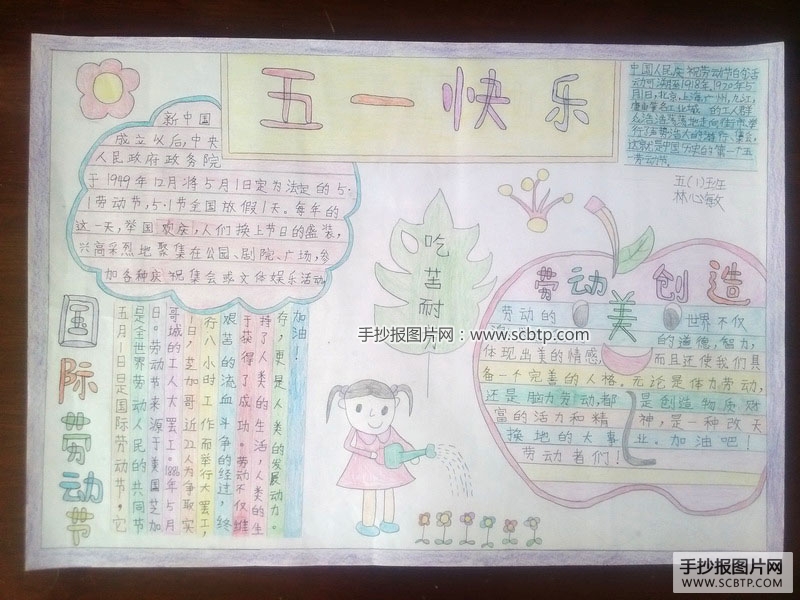 五一快乐
新中国
成立以后,中央
人民政府政务院
于1949年12月将5月1日定为法定的5·
1劳动节,5·1节全国放假1天。每年的
这一天,举国欢庆,人们换上节日的盛装,
兴高采烈地聚集在公园、剧院、广场,参
加各种庆祝集会或文体娱乐活动
中国人民庆祝劳动节的活
五(1)班
林心敏
国际劳动节
五月1日是国际劳动节,它
是全世界劳动人民的共同节
日。劳动节来源于美国芝加
哥城的工人大罢工。1886年5月
1日,芝加哥近22人为争取实
行八小时工作而举行大罢工,
艰苦的流血斗争的经过,终
于获得了成功。劳动不仅维
持了人类的生活,人类的生
存,更是人类的发展动力。
加油!
吃苦耐
手抄报图片网:www.scbtp.com
劳动美创造
劳动的 世界不仅
的道德,智力,
体现出美的情感, 而且还使我们具
备一个完善的人格。无论是体力劳动,
还是脑力劳动,都是创造物质财
富的活力和精神,是一种改天
换地的大事业。加油吧!
劳动者们!
手抄报图片网
WWW.SCBTP.COM